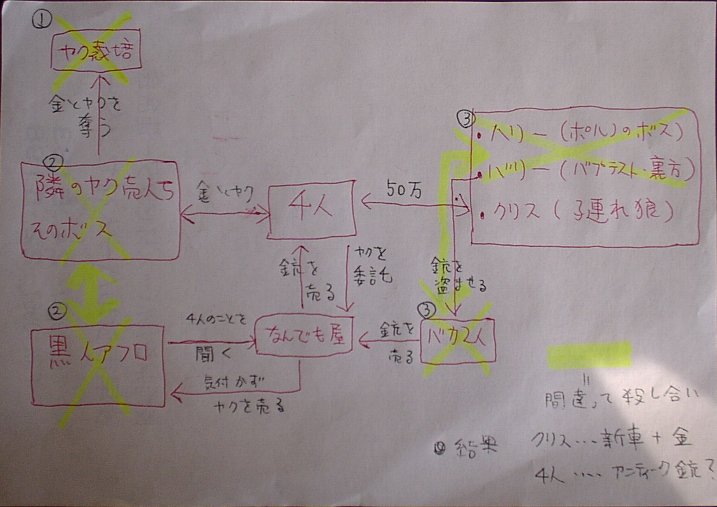 ①
ヤク栽培
金とヤクを
奪う
②
隣のヤク売人ち
そのボス
金とヤク
4人
50万
③
・ハリー (ポルノのボス)
・バリー (バプテスト・裏方)
・クリス (子連れ狼)
銃を
売る
ヤクを
委託
銃を
盗ませる
②
黒人アフロ
4人のことを
聞く
なんでも屋
銃を
売る
③
バカ2人
気付かず
ヤクを売る
間違って殺し合い
結果
クリス…新車+金
4人……アンティーク銃?